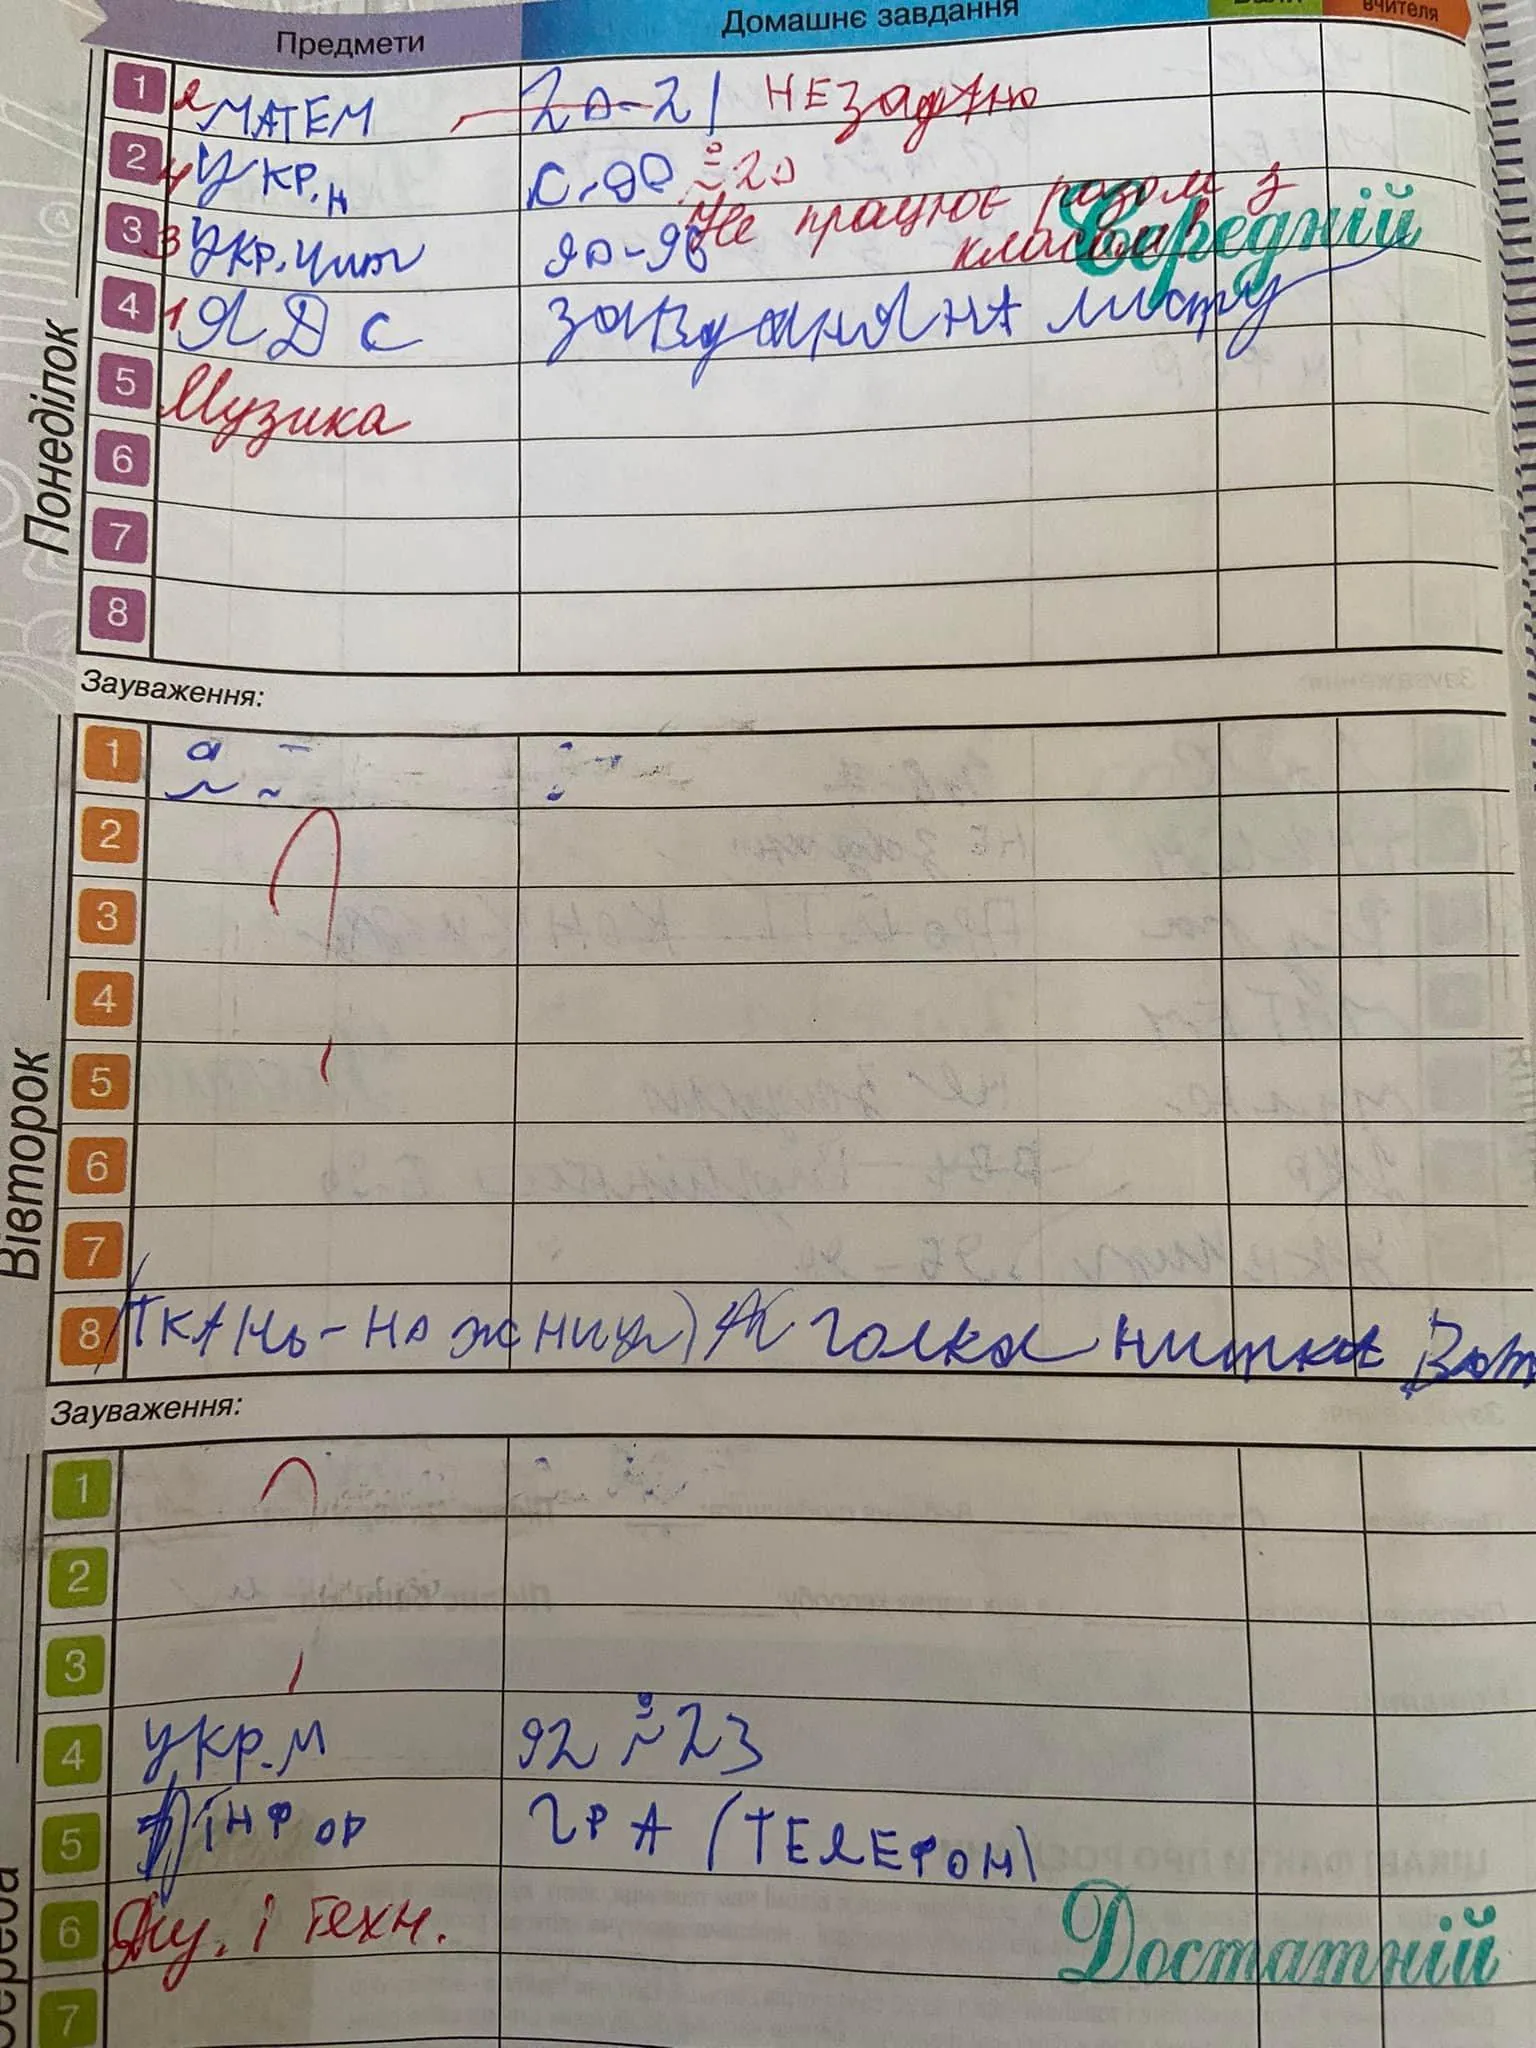 Предмети Домашнє завдання Бали вчителя
Понеділок
1 2 МАТЕМ 20-21 НЕ задано
2 4 Укр.н с.90 20
Не працює разом з
класом Середній
3 3 Укр.чит 90-96
4 1 ЯДС завдання НА листу
5 Музика
6
7
8
Зауваження:
Вівторок
1
2
3
4
5
6
7
8 (ТКАНЬ-НА жниця) голка нитка Ват
Зауваження:
Середа
1
2
3
4 УКР.М 92 23
5 ІНФОР ГРА (ТЕЛЕФОН)
6 і техн. Достатній
7